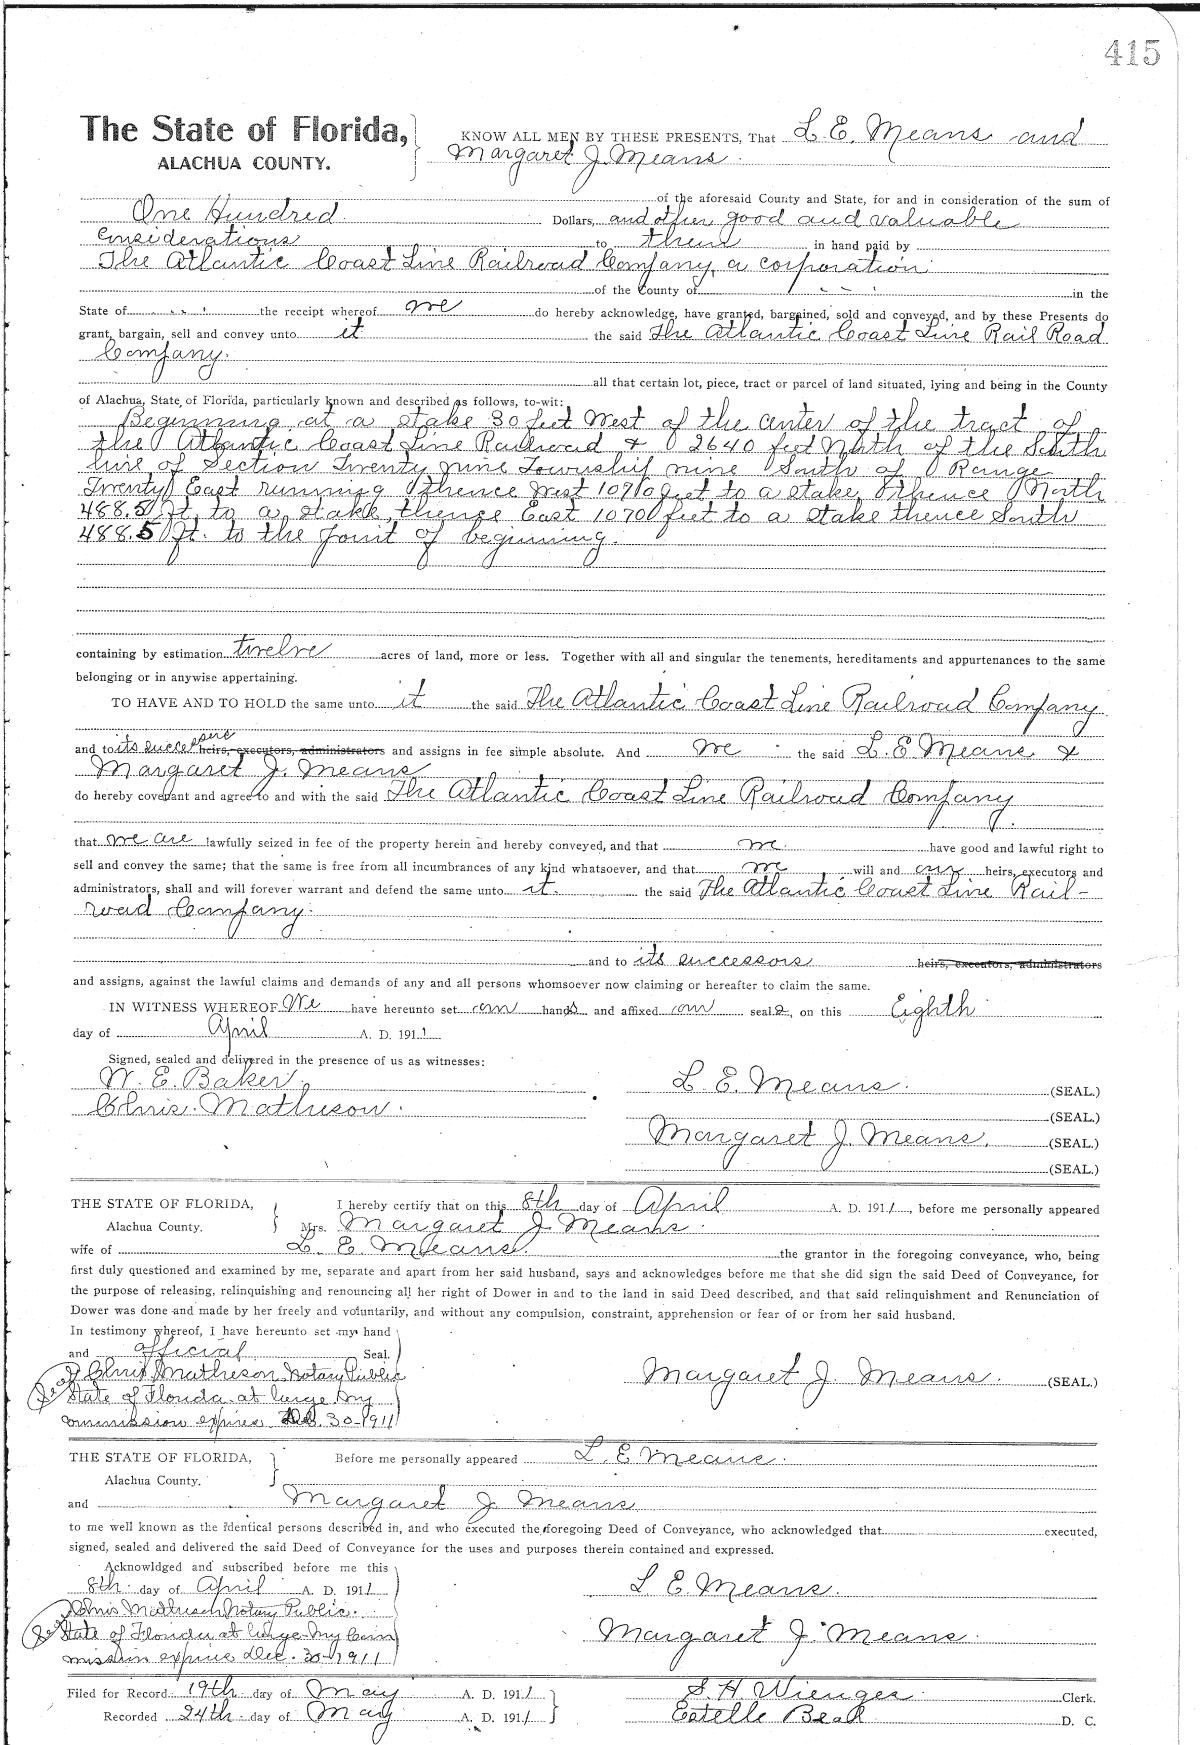 415
The State of Florida,
ALACHUA COUNTY.
KNOW ALL MEN BY THESE PRESENTS, That L. E. Means and
Margaret J. Means.
of the aforesaid County and State, for and in consideration of the sum of
One Hundred Dollars, and other good and valuable
considerations to them in hand paid by
The Atlantic Coast Line Railroad Company, a corporation
of the County of in the
State of the receipt whereof we do hereby acknowledge, have granted, bargained, sold and conveyed, and by these Presents do
grant, bargain, sell and convey unto it the said The Atlantic Coast Line Rail Road
Company.
all that certain lot, piece, tract or parcel of land situated, lying and being in the County
of Alachua, State of Florida, particularly known and described as follows, to-wit:
Beginning at a stake 30 feet West of the center of the tract of
the Atlantic Coast Line Railroad & 2640 feet North of the South
line of Section Twenty nine Township nine South of Range
Twenty East running thence West 1070 feet to a stake, thence North
488.5 ft. to a stake, thence East 1070 feet to a stake thence South
488.5 ft. to the point of beginning.
containing by estimation twelve acres of land, more or less. Together with all and singular the tenements, hereditaments and appurtenances to the same
belonging or in anywise appertaining.
TO HAVE AND TO HOLD the same unto it the said The Atlantic Coast Line Railroad Company
and to its successors heirs, executors, administrators and assigns in fee simple absolute. And we the said L. E. Means &
Margaret J. Means
do hereby covenant and agree to and with the said The Atlantic Coast Line Railroad Company
that we are lawfully seized in fee of the property herein and hereby conveyed, and that we have good and lawful right to
sell and convey the same; that the same is free from all incumbrances of any kind whatsoever, and that we will and our heirs, executors and
administrators, shall and will forever warrant and defend the same unto it the said The Atlantic Coast Line Rail-
road Company.
and to its successors heirs, executors, administrators
and assigns, against the lawful claims and demands of any and all persons whomsoever now claiming or hereafter to claim the same.
IN WITNESS WHEREOF We have hereunto set our hands and affixed our seals, on this Eighth
day of April A. D. 1911
Signed, sealed and delivered in the presence of us as witnesses:
W. E. Baker.
Chris. Matheson.
L. E. Means. (SEAL.)
(SEAL.)
Margaret J. Means. (SEAL.)
(SEAL.)
THE STATE OF FLORIDA,
Alachua County.
I hereby certify that on this 8th day of April A. D. 1911, before me personally appeared
Mrs. Margaret J. Means.
wife of L. E. Means. the grantor in the foregoing conveyance, who, being
first duly questioned and examined by me, separate and apart from her said husband, says and acknowledges before me that she did sign the said Deed of Conveyance, for
the purpose of releasing, relinquishing and renouncing all her right of Dower in and to the land in said Deed described, and that said relinquishment and Renunciation of
Dower was done and made by her freely and voluntarily, and without any compulsion, constraint, apprehension or fear of or from her said husband.
In testimony whereof, I have hereunto set my hand
and official Seal.
Chris Matheson Notary Public
State of Florida at large My
commission expires Dec. 30-1911
Seal
Margaret J. Means. (SEAL.)
THE STATE OF FLORIDA,
Alachua County.
Before me personally appeared L. E. Means.
and Margaret J. Means
to me well known as the identical persons described in, and who executed the foregoing Deed of Conveyance, who acknowledged that executed,
signed, sealed and delivered the said Deed of Conveyance for the uses and purposes therein contained and expressed.
Acknowldged and subscribed before me this
8th day of April A. D. 1911
Chris Matheson Notary Public.
State of Florida at large. My Com
mission expires Dec. 30-1911
Seal
L. E. Means.
Margaret J. Means.
Filed for Record 19th day of May A. D. 1911
Recorded 24th day of May A. D. 1911
S. H. Wienges Clerk.
Estelle Beal D. C.